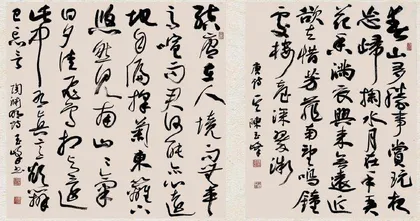 春山多勝事賞玩夜
忘歸掬水月在手弄
花香滿衣興來無遠近
欲去惜芳菲南望鳴鐘
處樓臺深翠微
唐詩
結廬在人境而無車
馬喧問君何能爾心遠
地自偏採菊東籬下
悠然見南山山氣
日夕佳飛鳥相與還
此中有真意欲辯
已忘言 陶淵明詩